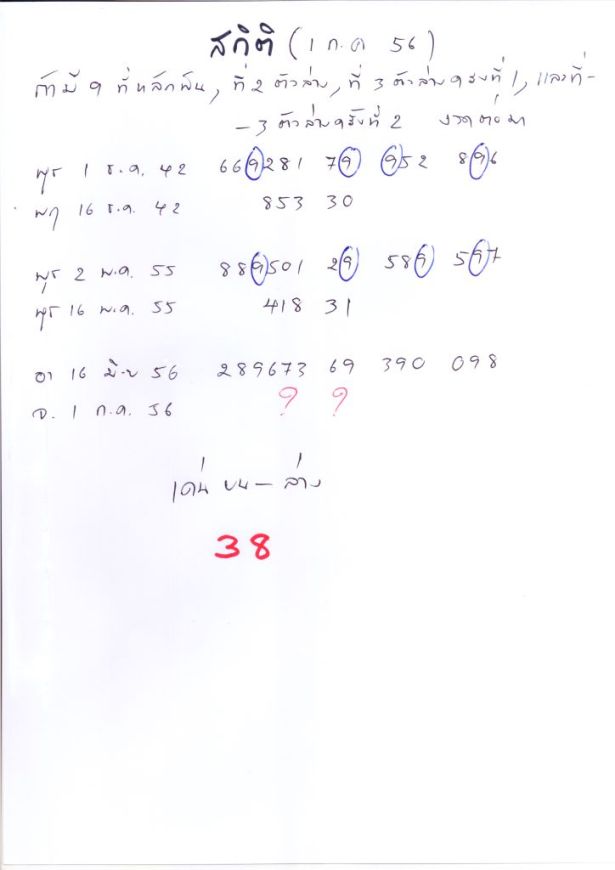 สถิติ (1 ก.ค 56)
ถ้ามี 9 ที่หลักพัน, ที่ 2 ตัวล่าง, ที่ 3 ตัวล่างครั้งที่ 1, และที่-
- 3 ตัวล่างครั้งที่ 2 งวดต่อมา
พุธ 1 ธ.ค. 42 669281 79 952 896
พฤ 16 ธ.ค. 42 853 30
พุธ 2 พ.ค. 55 889501 29 589 597
พุธ 16 พ.ค. 55 418 31
อา 16 มิ.ย 56 289673 69 390 098
จ. 1 ก.ค. 56 ? ?
เด่น บน - ล่าง
38